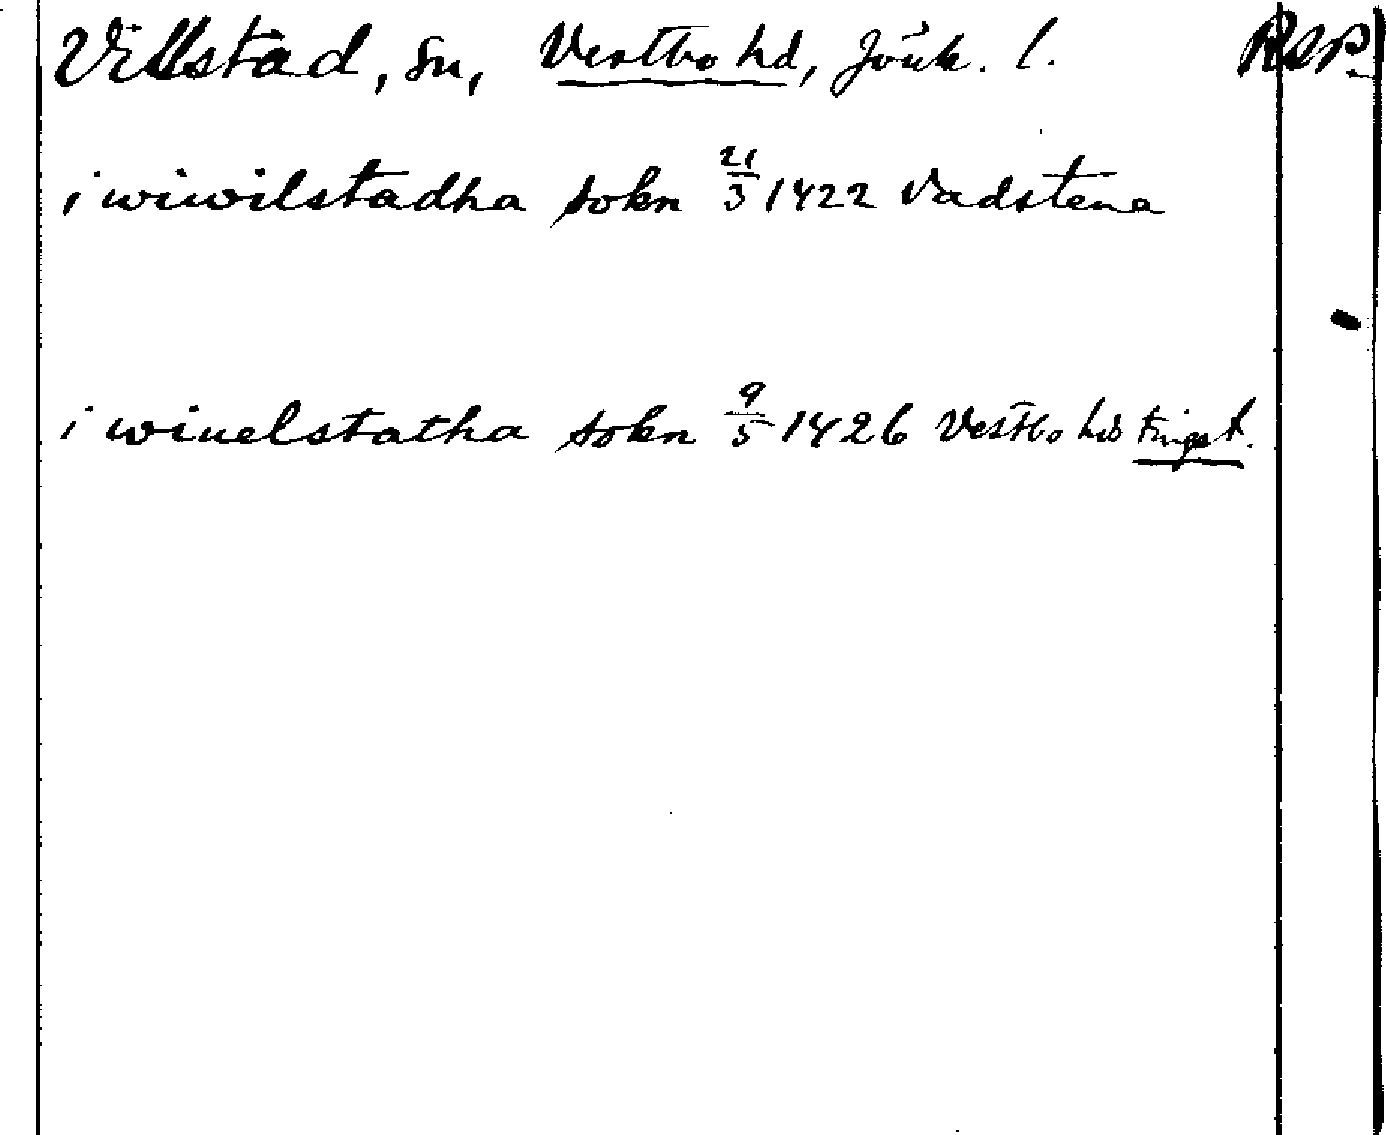 Villstad, sn, Vestbo hd, Jönk. l. RAP.
i wiwilstadha sokn 21/3 1422 Vadstena
i wiuelstatha sokn 9/5 1426 Vestbo hds tingst.